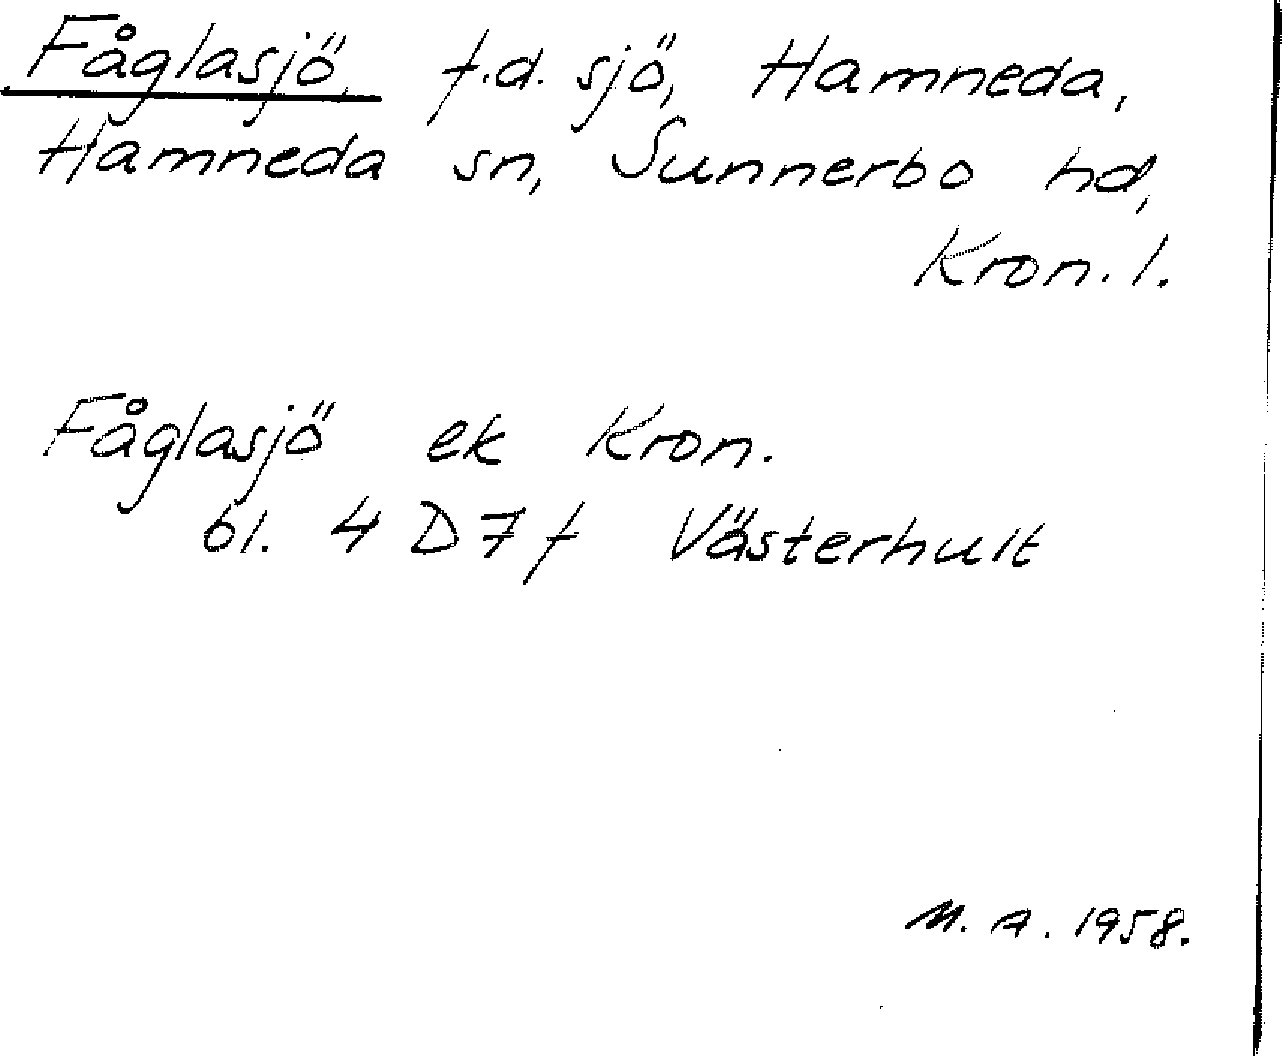 Fåglasjö, f.d. sjö, Hamneda,
Hamneda sn, Sunnerbo hd,
Kron. l.
Fåglasjö ek Kron.
bl. 4 D 7 f Västerhult
M. A. 1958.